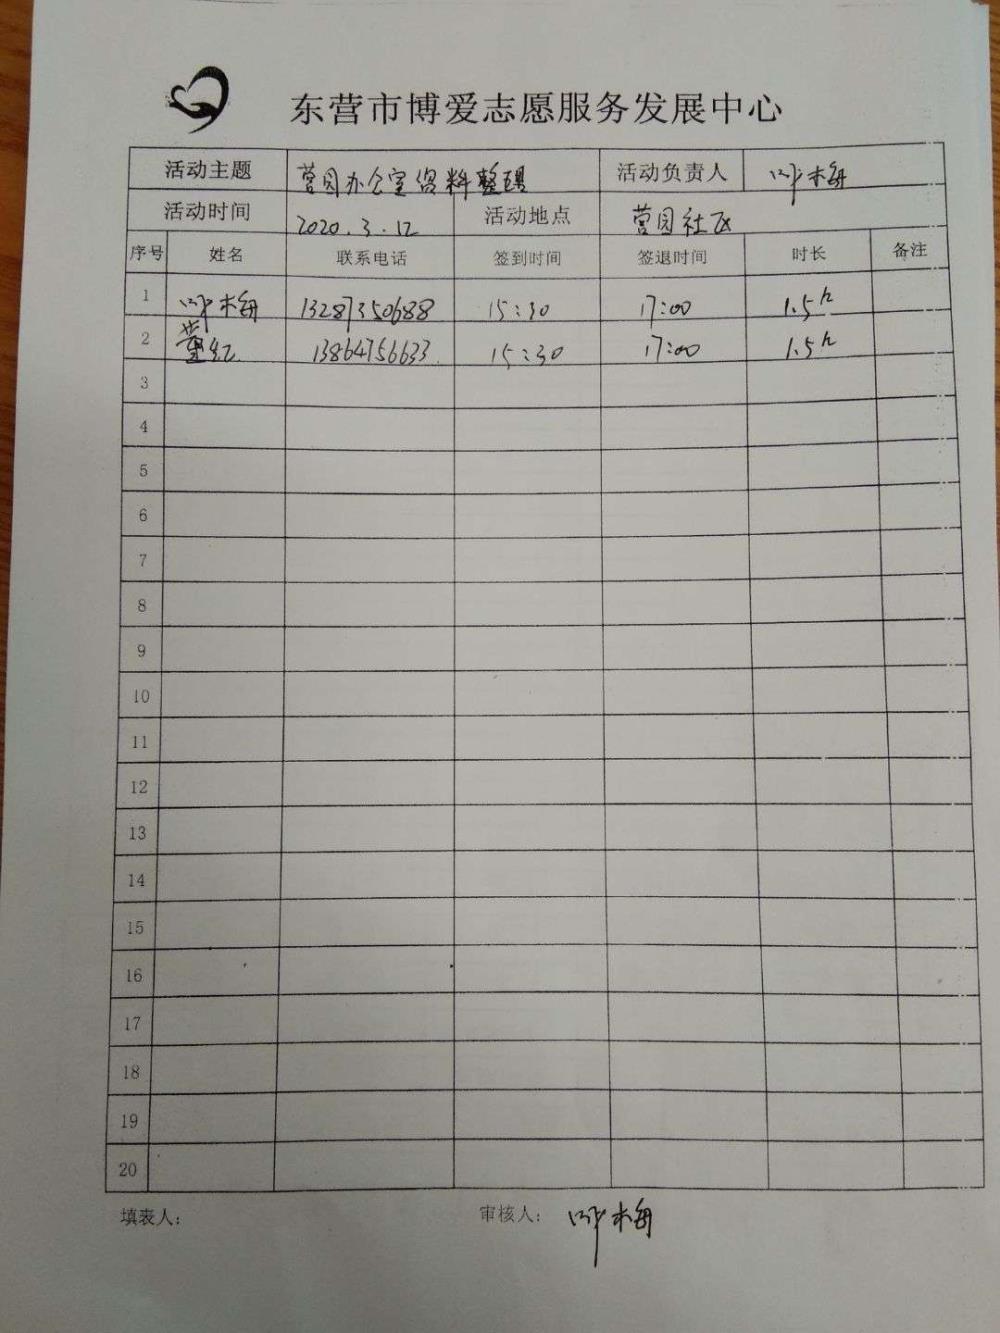 东营市博爱志愿服务发展中心
活动主题 营园办公室资料整理 活动负责人 梅
活动时间 2020.3.12 活动地点 营园社区
序号 姓名 联系电话 签到时间 签退时间 时长 备注
1 梅 13287350688 15:30 17:00 1.5h
2 董红 13864756633 15:30 17:00 1.5h
3
4
5
6
7
8
9
10
11
12
13
14
15
16
17
18
19
20
填表人: 审核人: 梅